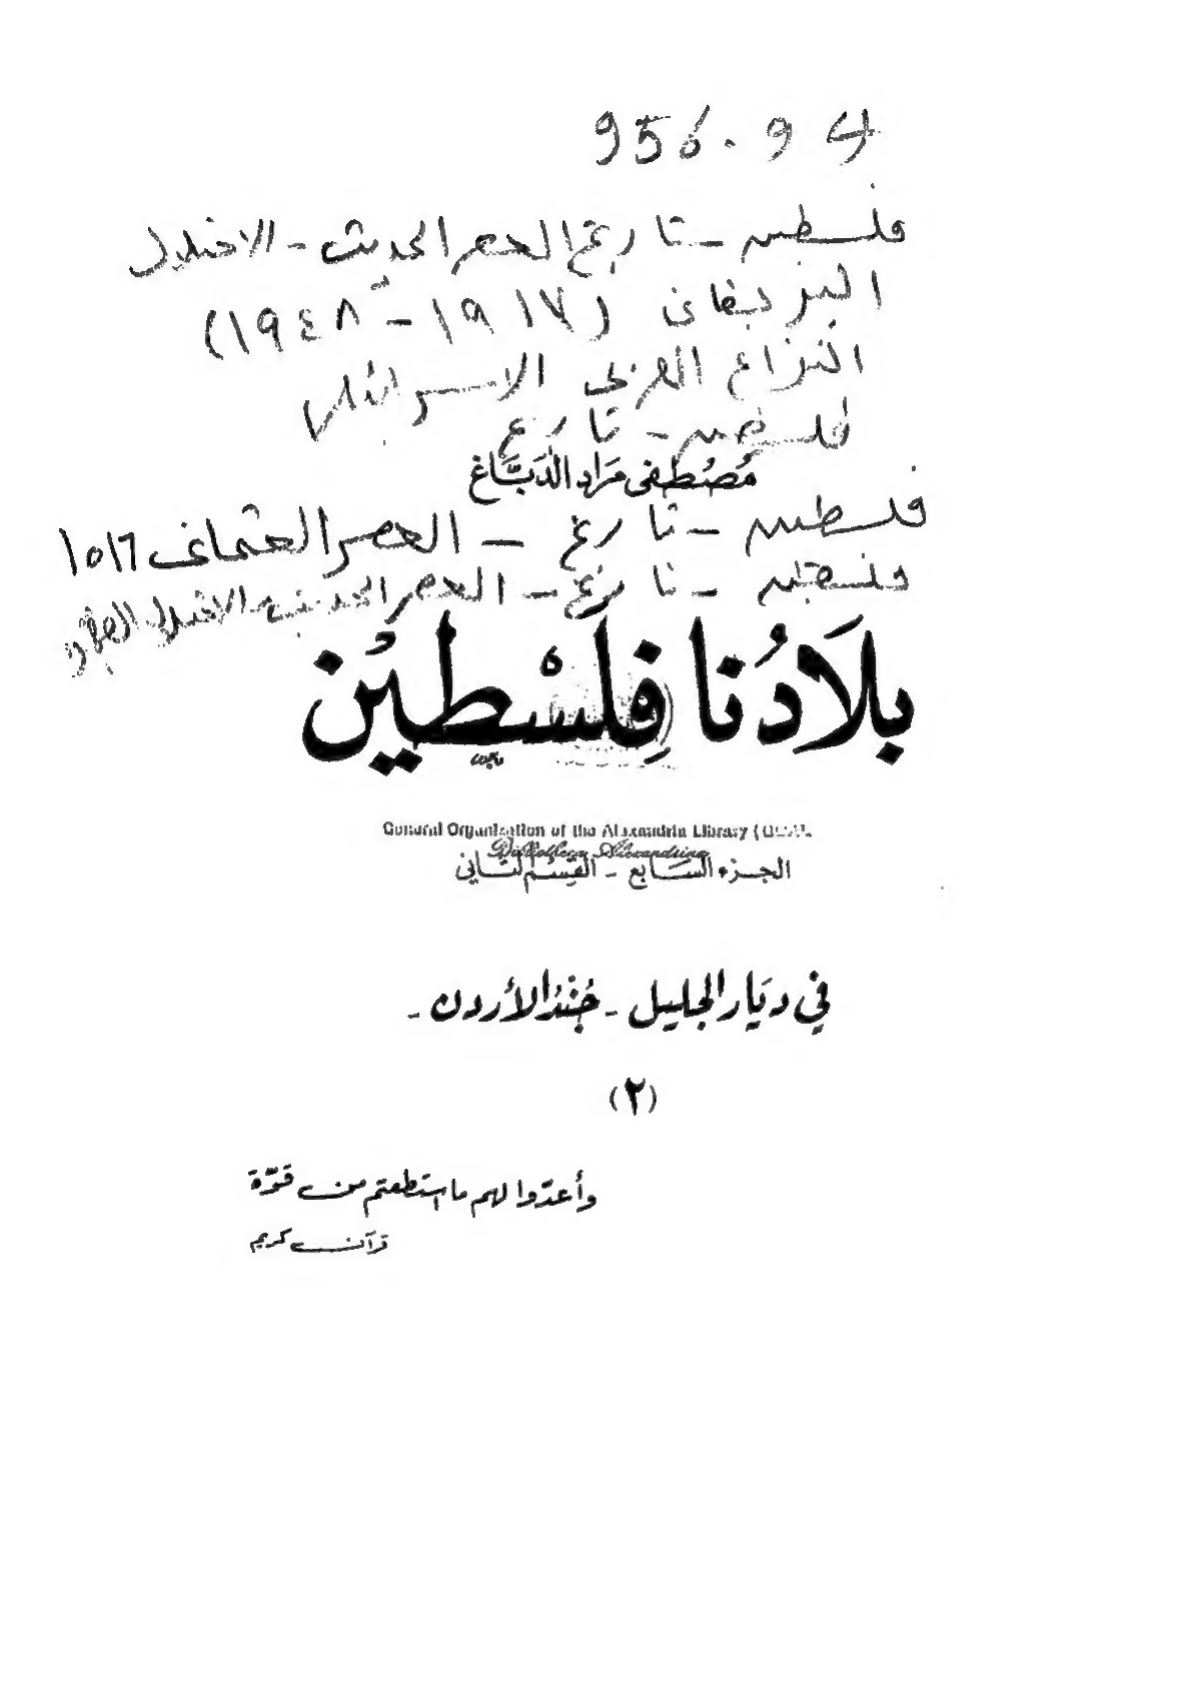 956.94
فلسطين - تاريخ العصر الحديث - الاحتلال
البريطانى (١٩١٧ - ١٩٤٨)
النزاع العربى الاسرائيلى
فلسطين - تاريخ
مُصْطفى مَراد الدَّباغ
فلسطين - تاريخ - العصر العثمانى ١٥١٦
فلسطين - تاريخ - العصر الحديث - الاحتلال
بِلَادُنا فِلَسْطِيْن
General Organization of the Alexandria Library (GOAL
Bibliotheca Alexandrina
الجزء السَّابع - القِسْم الثاني
في ديَار الجليل - جُنْدُ الأردن -
(٢)
وأعدّوا لهم ما استطعتم من قوّة
قرآن كريم